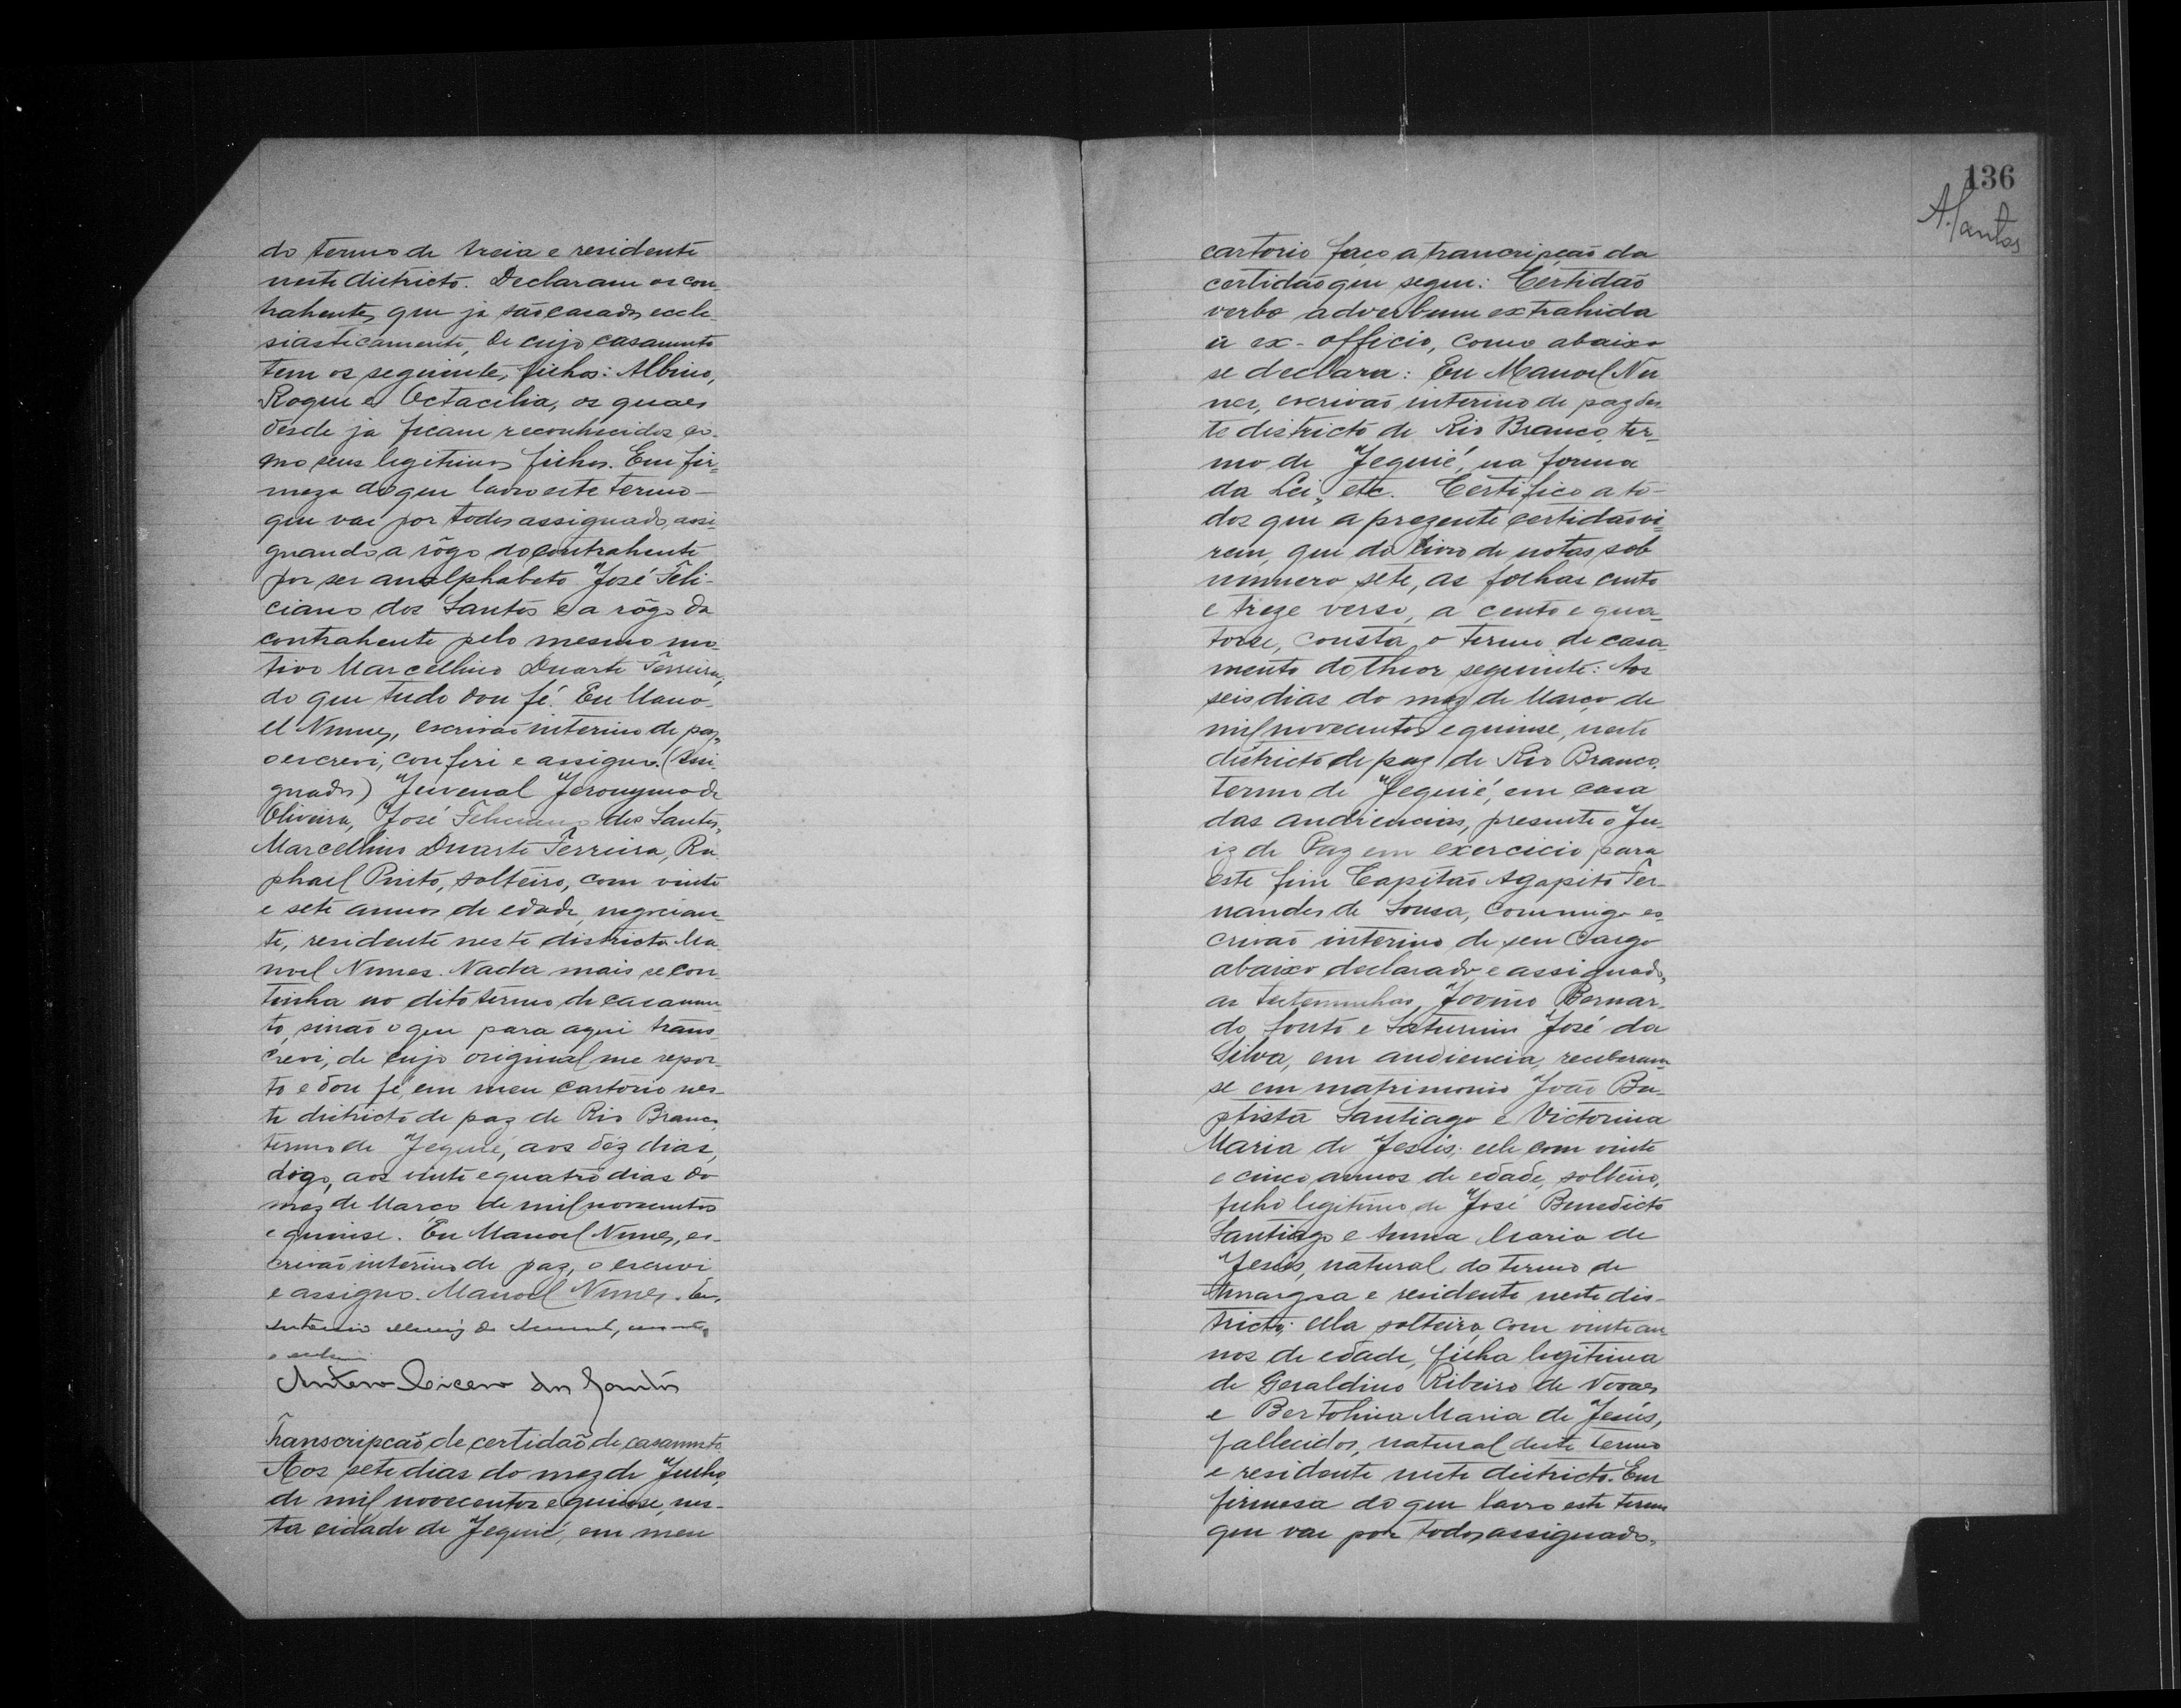 do termo de Areia e residente
neste districto. Declaram os con-
trahentes que ja são casados eccle-
siasticamente, de cujo casamento
tem os seguintes filhos: Albino,
Roque e Octacilia, os quaes
desde ja ficam reconhecidos co-
mo seus legitimos filhos. Em fir-
meza do que lavro este termo
que vae por todos assignado, assi-
gnando a rôgo do contrahente
por ser analphabeto José Feli-
ciano dos Santos e a rôgo da
contrahente pelo mesmo mo-
tivo Marcellino Duarte Ferreira,
do que tudo dou fé. Eu Mano-
el Nunes, escrivão interino de paz,
o escrevi, conferi e assigno. (Assi-
gnados) Juvenal Jeronymo de
Oliveira, José Feliciano dos Santos,
Marcellino Duarte Ferreira, Ra-
phael Pinto, solteiro, com vinte
e sete annos de edade, negocian-
te, residente neste districto. Ma-
noel Nunes. Nada mais se con-
tinha no dito termo de casamen-
to, sinão o que para aqui trans-
crevi, de cujo original me repor-
to e dou fé, em meu cartorio nes-
te districto de paz de Rio Branco,
termo de Jequié, aos dez dias,
digo, aos vinte e quatro dias do
mez de Março de mil novecentos
e quinse. Eu Manoel Nunes, es-
crivão interino de paz, o escrevi
e assigno. Manoel Nunes. Eu,
Antonio
Antero Cicero dos Santos
Transcripcaõ de certidaõ de casamento.
Aos sete dias do mez de Julho,
de mil novecentos e quinse, nes-
ta cidade de Jequié, em meu
136
A. Santos
cartorio faço a trancripção da
certidão que segue: Certidão
verbo adverbum extrahida
a ex-officio, como abaixo
se declara: Eu Manoel Nu
nes, escrivão interino de paz des-
te districto de Rio Branco, ter-
mo de Jequié, na forma
da Lei, etc. Certifico a to-
dos que a prezente certidão vi-
rem, que do livro de notas sob
numero sete, as folhas cento
e treze verso, a cento e qua-
torse, consta o termo de casa-
mento do theor seguinte: Aos
seis dias do mez de Março de
mil novecentos e quinse, neste
districto de paz de Rio Branco,
termo de Jequié, em casa
das audiencias, presente o Ju-
iz de Paz em exercicio para
este fim Capitão Agapito Fer-
nandes de Sousa, commigo es-
crivão interino de seu cargo
abaixo declarado e assignado,
as testemunhas, Jovino Bernar-
do Souto e Saturnino José da
Silva, em audiencia, receberam-
se em matrimonio João Ba-
ptista Santiago e Victorina
Maria de Jesus; elle com vinte
e cinco annos de edade, solteiro,
filho legitimo de José Benedicto
Santiago e Anna Maria de
Jesus, natural do termo de
Amargosa e residente neste dis-
tricto; ella solteira, com vinte an-
nos de edade, filha legitima
de Geraldino Ribeiro de Novaes
e Bertolina Maria de Jesús,
fallecidos, natural deste termo
e residente neste districto. Em
firmesa do que lavro este termo
que vae por todos assignado,